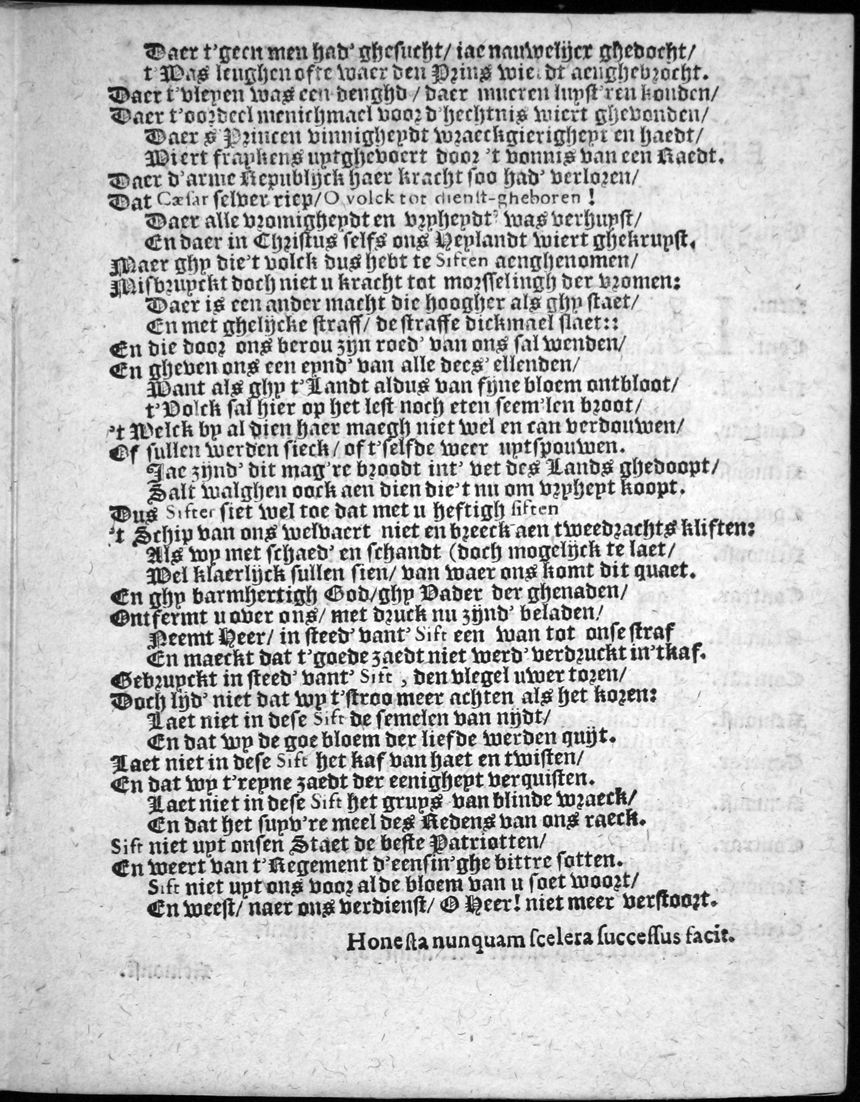 Daer t'geen men had' ghesucht/ iae nauwelijcx ghedocht/
t'Was leughen ofte waer den Prins wierdt aenghebrocht.
Daer t'vleyen was een deughd/ daer mueren luyst'ren konden/
Daer t'oordeel menichmael voor d'hechtnis wiert ghevonden/
Daer s'Princen vinnigheydt wraeckgierigheyt en haedt/
Wiert fraykens uytghevoert door 't vonnis van een Raedt.
Daer d'arme Republijck haer kracht soo had' verloren/
Dat Cæsar selver riep/ O volck tot dienst-gheboren!
Daer alle vromigheydt en vryheydt' was verhuyst/
En daer in Christus selfs ons Heylandt wiert ghekruyst.
Maer ghy die't volck dus hebt te Siften aenghenomen/
Misbruyckt doch niet u kracht tot morsselingh der vromen:
Daer is een ander macht die hoogher als ghy staet/
En met ghelijcke straff/ de straffe dickmael slaet::
En die door ons berou zyn roed' van ons sal wenden/
En gheven ons een eynd' van alle dees' ellenden/
Want als ghy t'Landt aldus van fyne bloem ontbloot/
t'Volck sal hier op het lest noch eten seem'len broot/
't Welck by al dien haer maegh niet wel en can verdouwen/
Of sullen werden sieck/ of t'selfde weer uytspouwen.
Jae zynd' dit mag're broodt int' vet des Lands ghedoopt/
Salt walghen oock aen dien die't nu om vryheyt koopt.
Dus Sifter siet wel toe dat met u heftigh siften
't Schip van ons welvaert niet en breeck aen tweedrachts kliften:
Als wy met schaed' en schandt (doch mogelijck te laet/
Wel klaerlijck sullen sien/ van waer ons komt dit quaet.
En ghy barmhertigh God/ ghy Vader der ghenaden/
Ontfermt u over ons/ met druck nu zynd' beladen/
Neemt Heer/ in steed' vant' Sift een wan tot onse straf
En maeckt dat t'goede zaedt niet werd' verdruckt in'tkaf.
Gebruyckt in steed' vant' Sift, den vlegel uwer toren/
Doch lyd' niet dat wy t'stroo meer achten als het koren:
Laet niet in dese Sift de semelen van nydt/
En dat wy de goe bloem der liefde werden quijt.
Laet niet in dese Sift het kaf van haet en twisten/
En dat wy t'reyne zaedt der eenigheyt verquisten.
Laet niet in dese Sift het gruys van blinde wraeck/
En dat het suyv're meel des Redens van ons raeck.
Sift niet uyt onsen Staet de beste Patriotten/
En weert van t'Regement d'eensin'ghe bittre sotten.
Sift niet uyt ons voor al de bloem van u soet woort/
En weest/ naer ons verdienst/ O Heer! niet meer verstoort.
Honesta nunquam scelera successus facit.